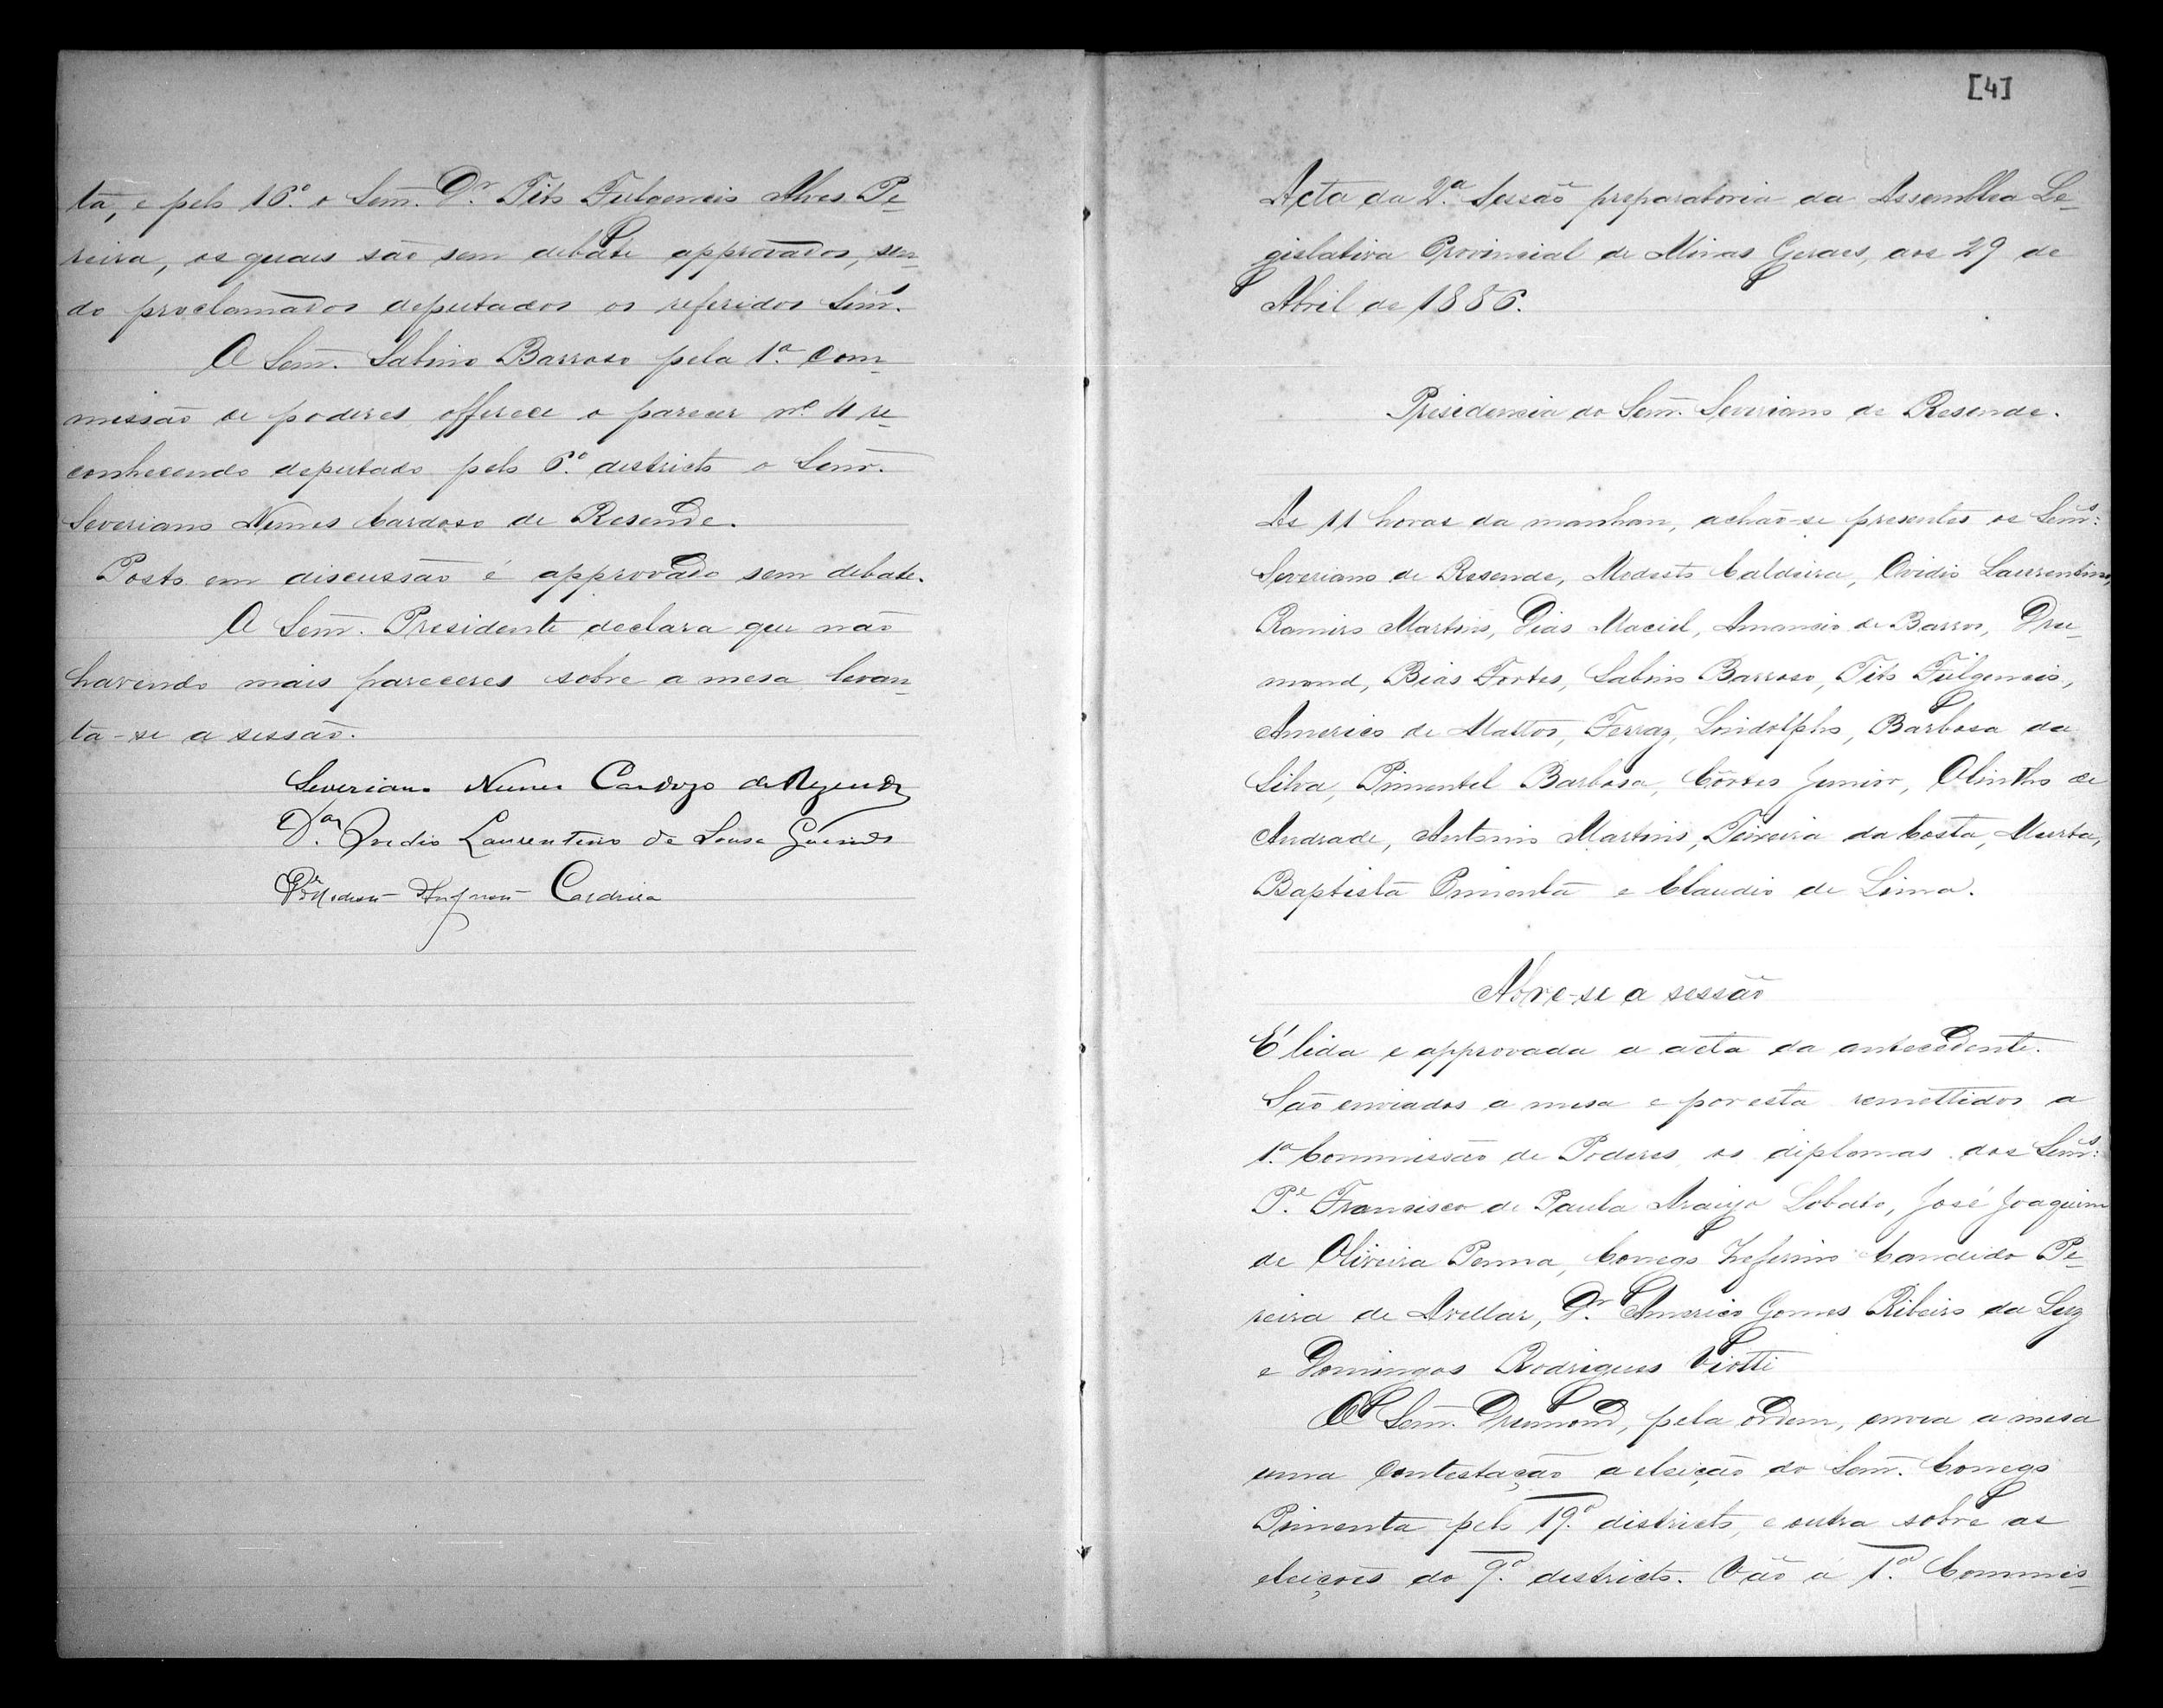 ta, e pelo 16.º o Senr. Dr. Tito Fulgencio Alves Pe-
reira, os quaes são sem debate approvados, sen-
do proclamados deputados os referidos Senrs.
O Senr. Sabino Barroso pela 1.ª Com-
missão de poderes offerece o parecer nº 4 re-
conhecendo deputado pelo 6.º districto o Senr.
Severiano Nunes Cardoso de Resende.
Posto em discussão é approvado sem debate.
O Senr. Presidente declara que não
havendo mais pareceres sobre a mesa levan-
ta-se a sessão.
Severiano Nunes Cardozo de Rezende
Ovidio Laurentino de Sousa
Caldeira
[4]
Acta da 2.ª Sessão preparatoria da Assemblea Le-
gislativa Provincial de Minas Geraes, aos 29 de
Abril de 1886.
Presidencia do Senr. Severiano de Resende.
As 11 horas da manhan, achão-se presentes os Senrs:
Severiano de Resende, Modesto Caldeira, Ovidio Laurentino,
Ramiro Martins, Dias Maciel, Amancio de Barros, Dru-
mond, Bias Fortes, Sabino Barroso, Tito Fulgencio,
Americo de Mattos, Ferraz, Lindolpho, Barbosa da
Silva, Pimentel Barbosa, Côrtes Junior, Olintho de
Andrade, Antonio Martins, Teixeira da Costa, Murta,
Baptista Pimenta e Claudio de Lima.
Abre-se a sessão
E' lida e approvada a acta da antecedente.
São enviados a mesa e por esta remettidos a
1.ª Commissão de Poderes os diplomas dos Senrs:
Pe. Francisco de Paula Araujo Lobato, José Joaquim
de Oliveira Penna, Conego Zeferino Candido Pe-
reira de Avellar, Dr. Americo Gomes Ribeiro da Luz
e Domingos Rodrigues Viotti
O Senr. Drumond, pela ordem, envia a mesa
uma contestação a eleição do Senr. Conego
Pimenta pelo 19.º districto, e outra sobre as
eleições do 9.º districto. Vão á 1.ª Commis-